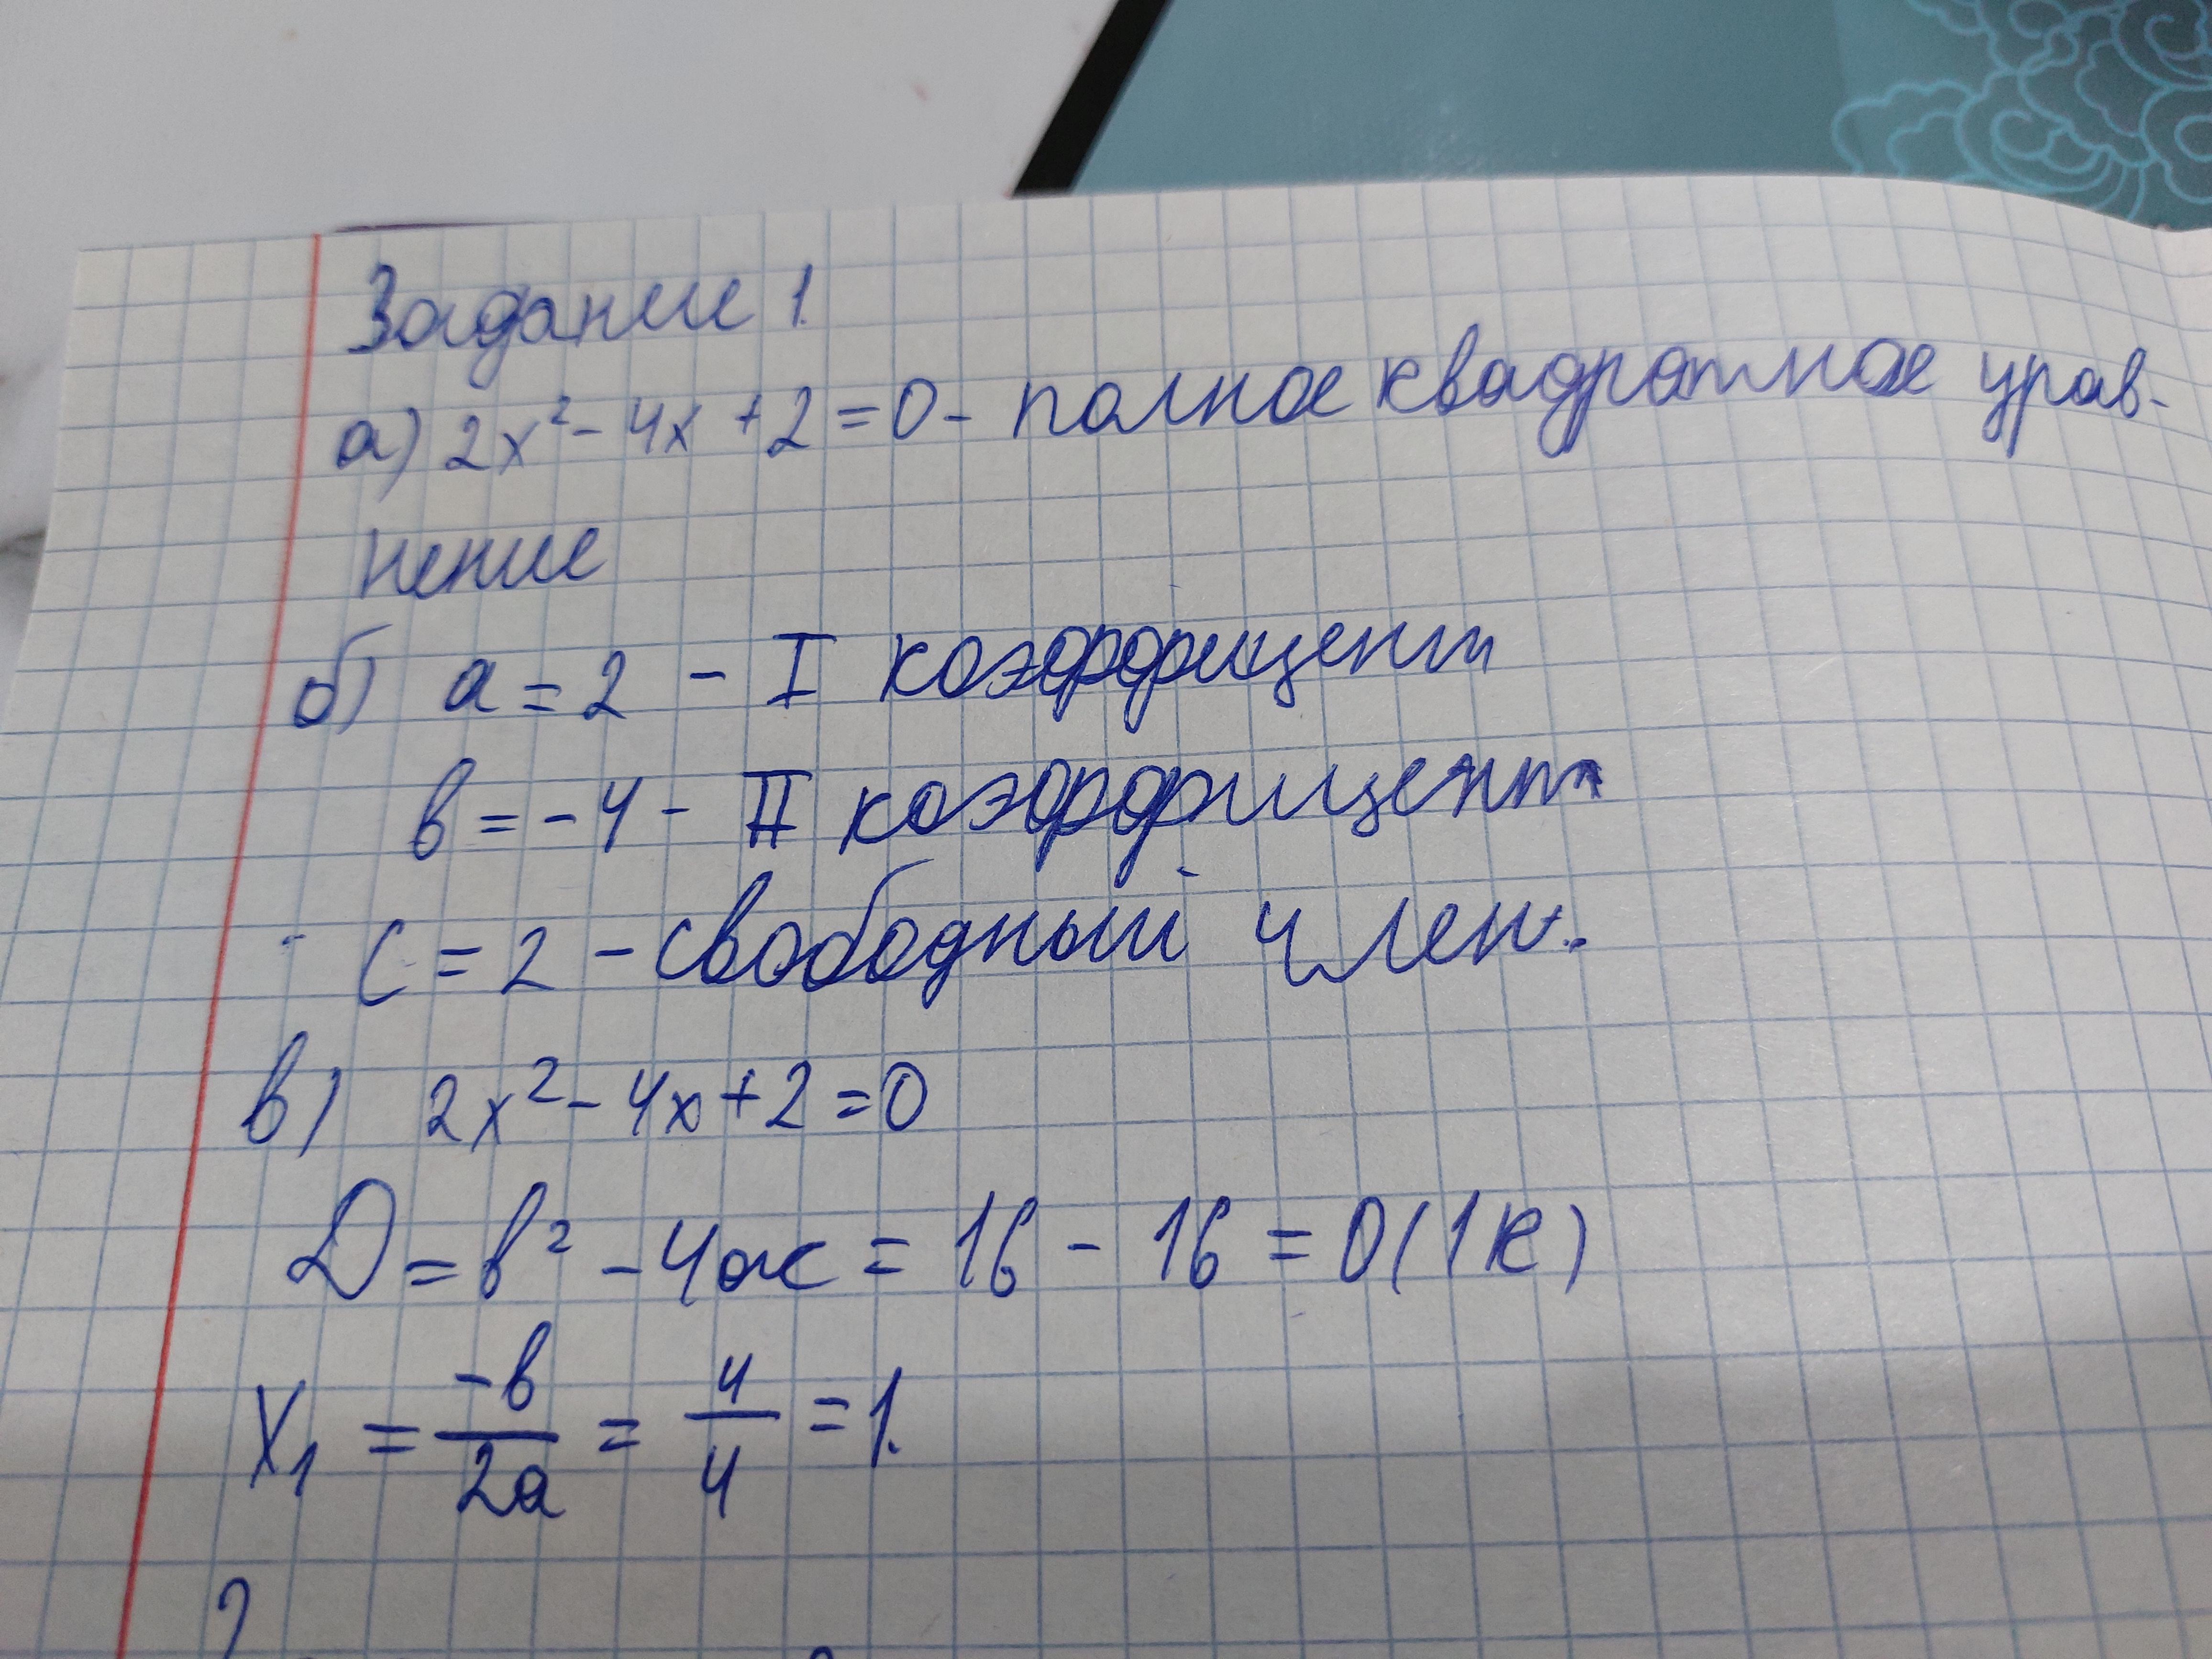 Задание 1.
а) 2x² - 4x + 2 = 0 - полное квадратное урав-
нение
б) a = 2 - I коэффицент
в = -4 - II коэффицент
c = 2 - свободный член.
в) 2x² - 4x + 2 = 0
D = в² - 4ac = 16 - 16 = 0 (1к)
x₁ = -в/2a = 4/4 = 1.